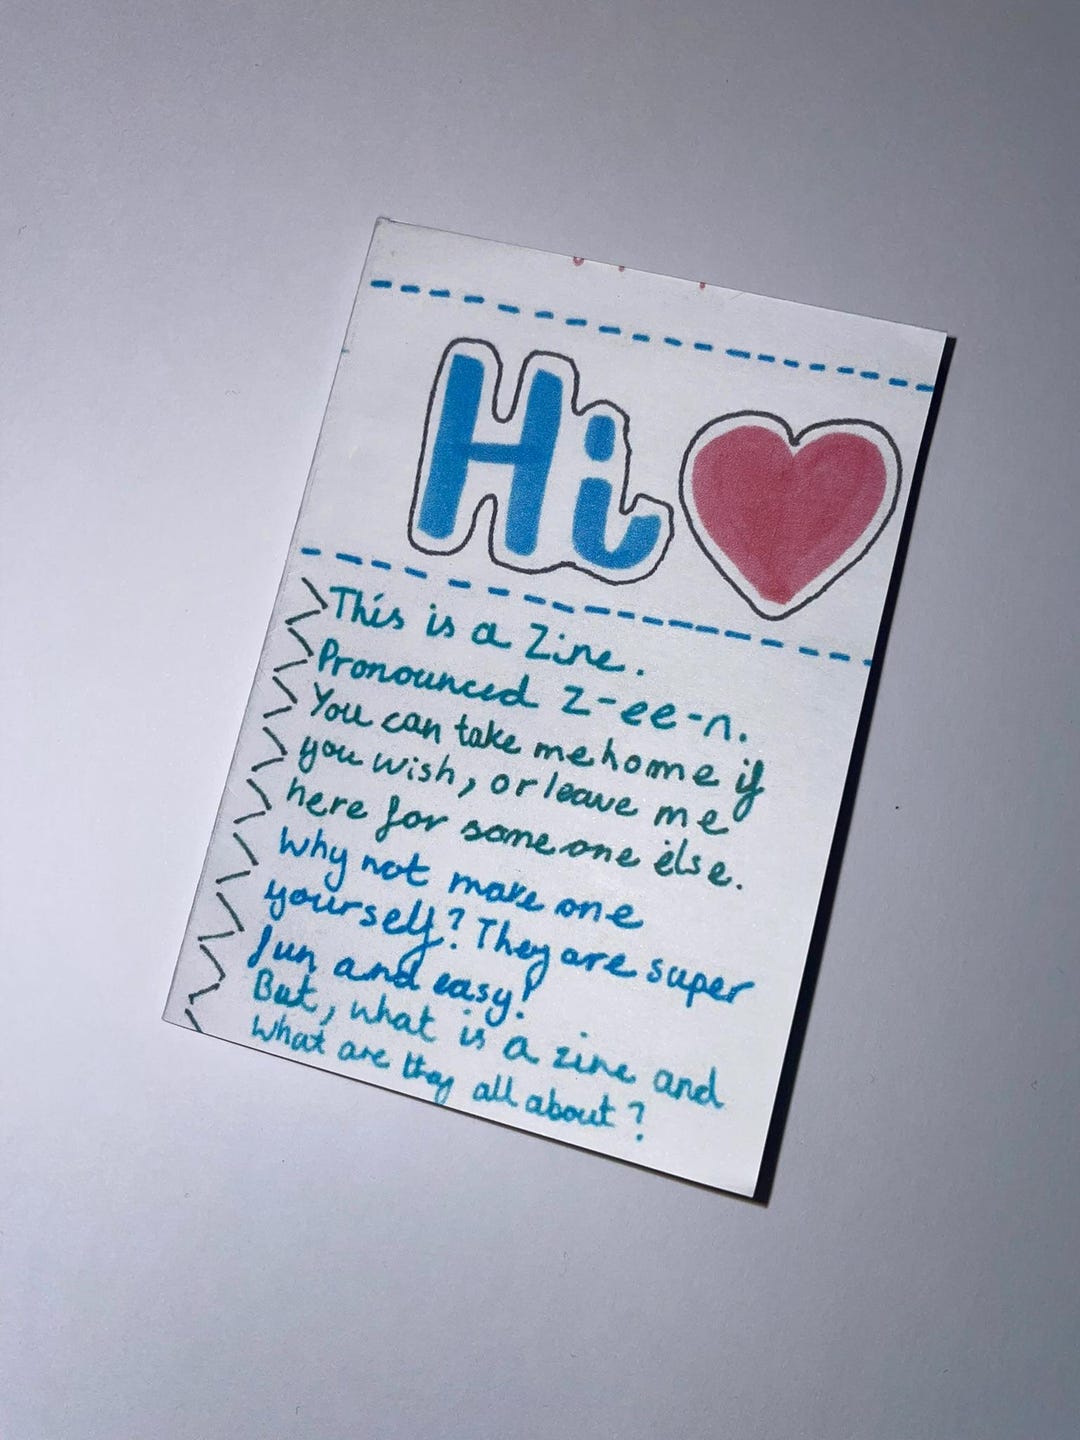 Hi
This is a Zine.
Pronounced z-ee-n.
You can take me home if
you wish, or leave me
here for someone else.
Why not make one
yourself? They are super
fun and easy!
But, what is a zine and
what are they all about?